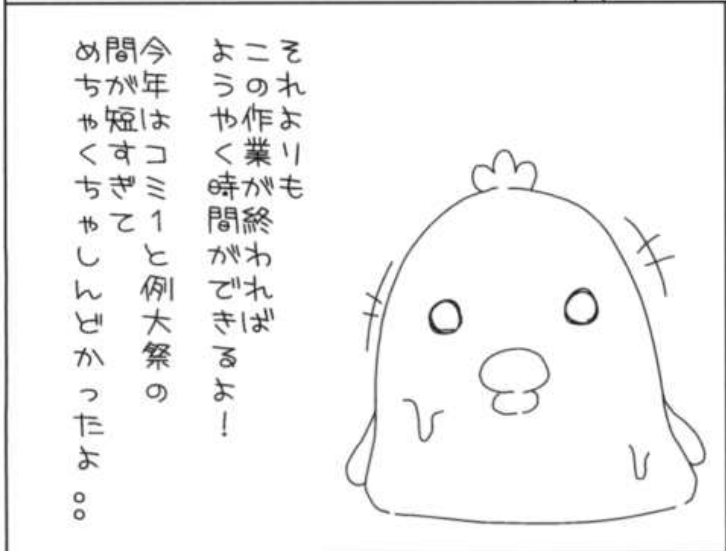 それよりも
この作業が終われば
ようやく時間ができるよ！
今年はコミ1と例大祭の
間が短すぎて
めちゃくちゃしんどかったよ。。